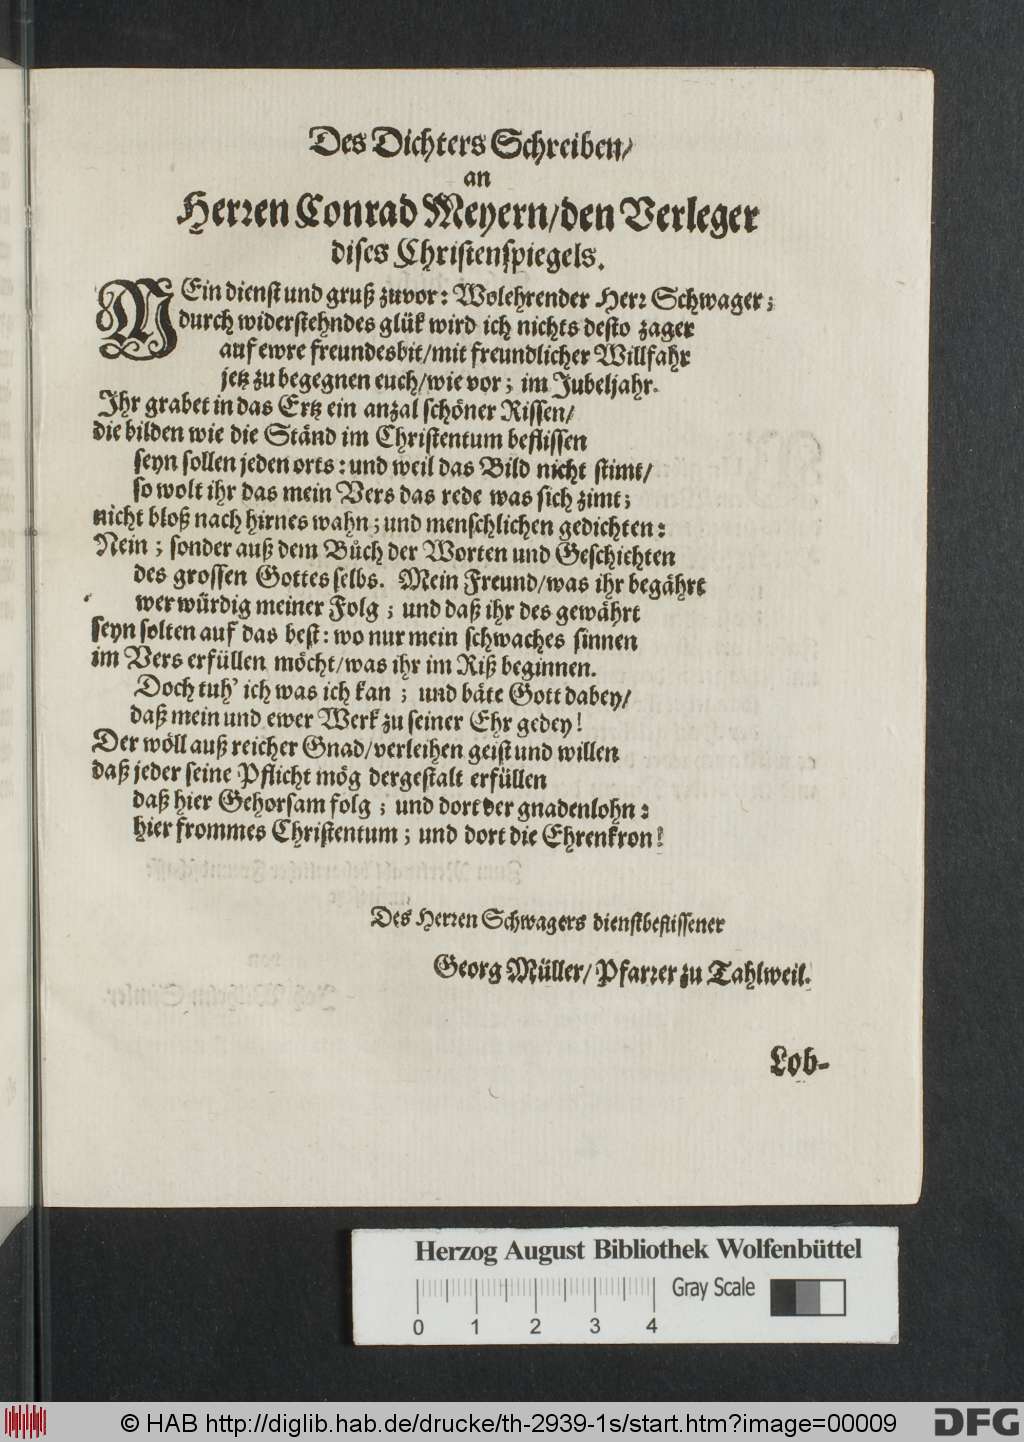 Des Dichters Schreiben/
an
Herꝛen Conrad Meyern/den Verleger
dises Christenspiegels.
MEin dienst und gruß zuvor: Wolehrender Herꝛ Schwager;
durch widerstehndes glük wird ich nichts desto zager
auf ewre freundesbit/mit freundlicher Willfahr
jetz zu begegnen euch/wie vor; im Jubeljahr.
Ihr grabet in das Ertz ein anzal schöner Rissen/
die bilden wie die Ständ im Christentum beflissen
seyn sollen jeden orts: und weil das Bild nicht stimt/
so wolt ihr das mein Vers das rede was sich zimt;
nicht bloß nach hirnes wahn; und menschlichen gedichten:
Nein; sonder auß dem Bůch der Worten und Geschichten
des grossen Gottes selbs. Mein Freund/was ihr begährt
wer würdig meiner Folg; und daß ihr des gewährt
seyn solten auf das best: wo nur mein schwaches sinnen
im Vers erfüllen möcht/was ihr im Riß beginnen.
Doch tuh' ich was ich kan; und bäte Gott dabey/
daß mein und ewer Werk zu seiner Ehr gedey!
Der wöll auß reicher Gnad/verleihen geist und willen
daß jeder seine Pflicht mög dergestalt erfüllen
daß hier Gehorsam folg; und dort der gnadenlohn:
hier frommes Christentum; und dort die Ehrenkron!
Des Herꝛen Schwagers dienstbeflissener
Georg Müller/Pfarꝛer zu Tahlweil.
Lob-
Herzog August Bibliothek Wolfenbüttel
Gray Scale
0 1 2 3 4
© HAB http://diglib.hab.de/drucke/th-2939-1s/start.htm?image=00009
DFG